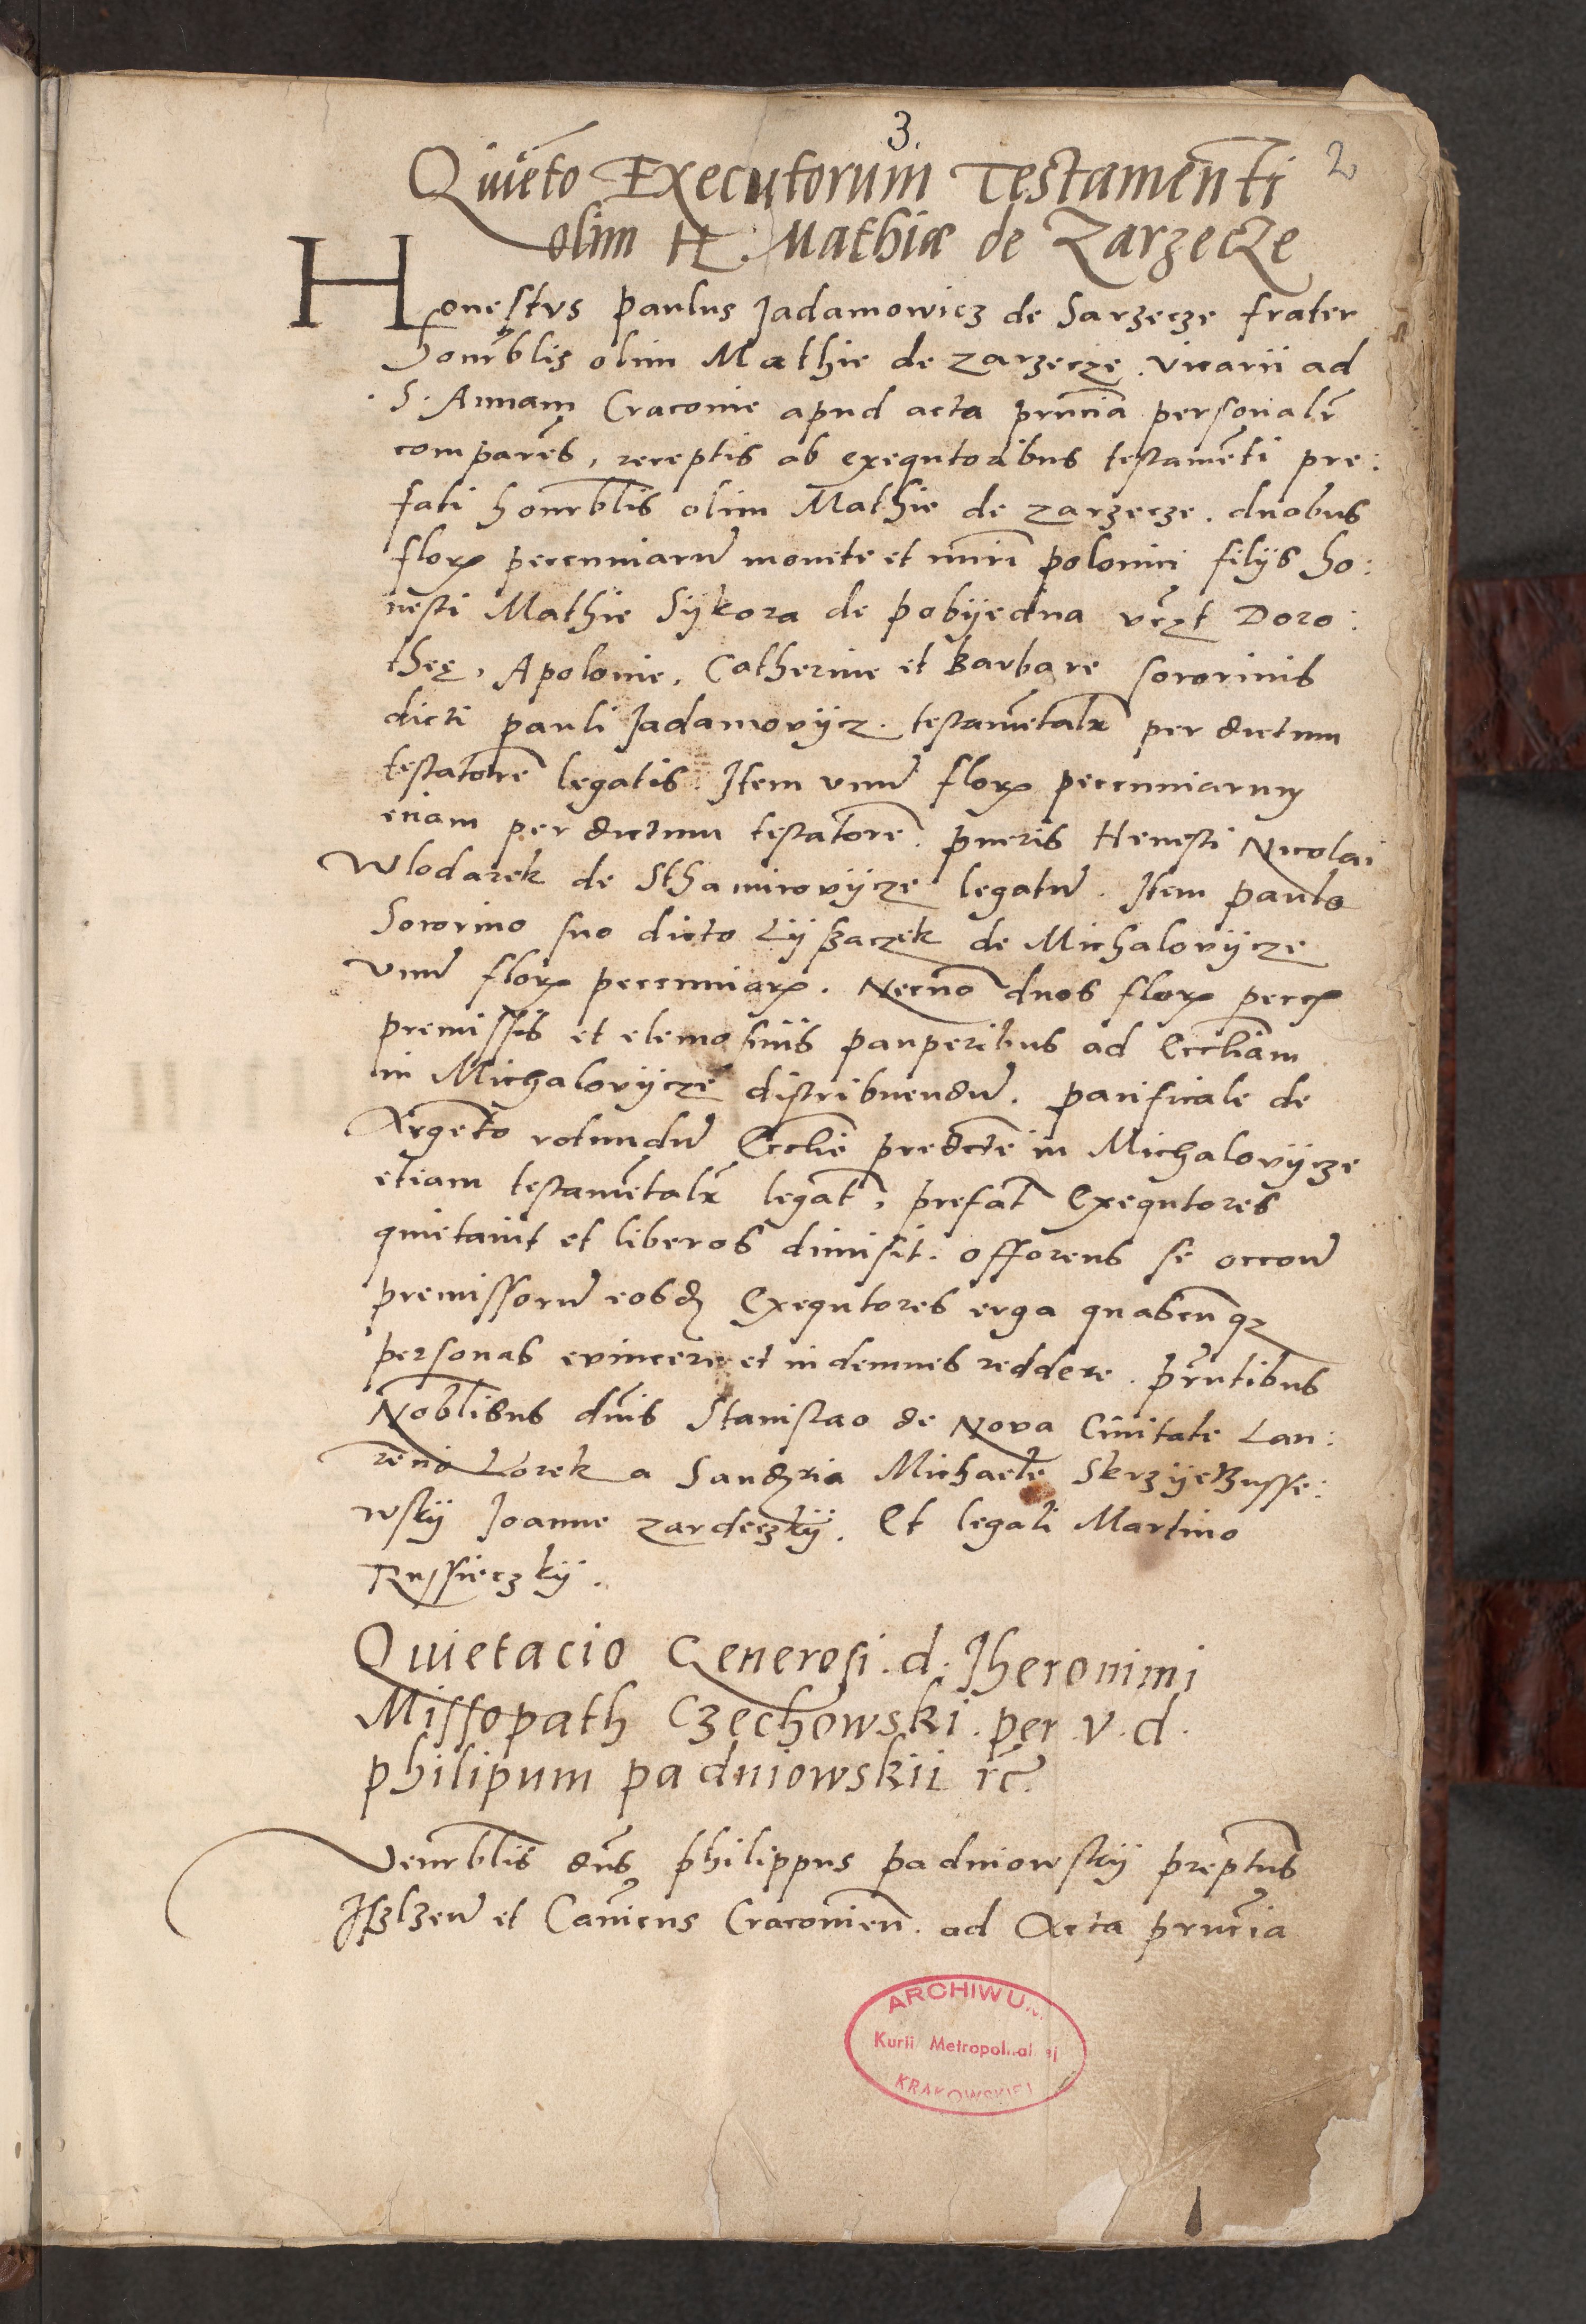 3.
2
Quieto Executorum Testamenti
olim H. Mathiæ de Zarzecze
Honestus Paulus Jadamowicz de Sarzecze frater
honrblis olim Mathie de Zarzecze. vicarii ad
S. Annam Cracovie apud acta prncia personalr
comparēs, receptis ab exequtoribus testamēti pre:
fati honrblis olim Mathie de Zarzecze. duobus
flor pecuniarū monete et nūri polonici filijs ho:
nesti Mathie Sykora de pobijedna vczt Doro:
theę, Apolonie, Catherine et Barbare sororinis
dicti pauli Jadamovijcz. testamētalr per dictum
testatorē legatis. Item vnū flor pecuniarum
eciam per dictum testatorē. pueris Honesti Nicolai
Wlodarek de Sthanirovijcze legatū. Item paulo
Sororino suo dicto Lijszaczek de Michalovijcze
vnū flor pecuniar. Necno duos flor pecc
premissis et elemosinis pauperibus ad Eccliam
in Michalovijcze distribuendū. pacificale de
Argēto rotundū Ecclie predcte in Michalovijcze
etiam testamētalr legat, prefat Exequtores
quietavit et liberos dimisit. offerens se occoē
premissorū eosd Exequtores erga quascunq
personas evincere et indemnes reddere. prntibus
Noblibus dnis Stanislao de Nova Civitate Lau:
rencio Lorek a Sandria Michaele Skrzijetusse:
wskij Joanne Zardeczkij. Et legali Martino
Russieczkij.
Quietacio Generosi. d. Jheronimi
Missopath Czechowski. per. v. d.
philipum padniowskii rc.
Venrblis dns philippus padniowskij preptus
Jszlzeñ et Canicus Cracovien. ad Acta prncia
ARCHIWUM
Kurii Metropolitalnej
KRAKOWSKIEJ